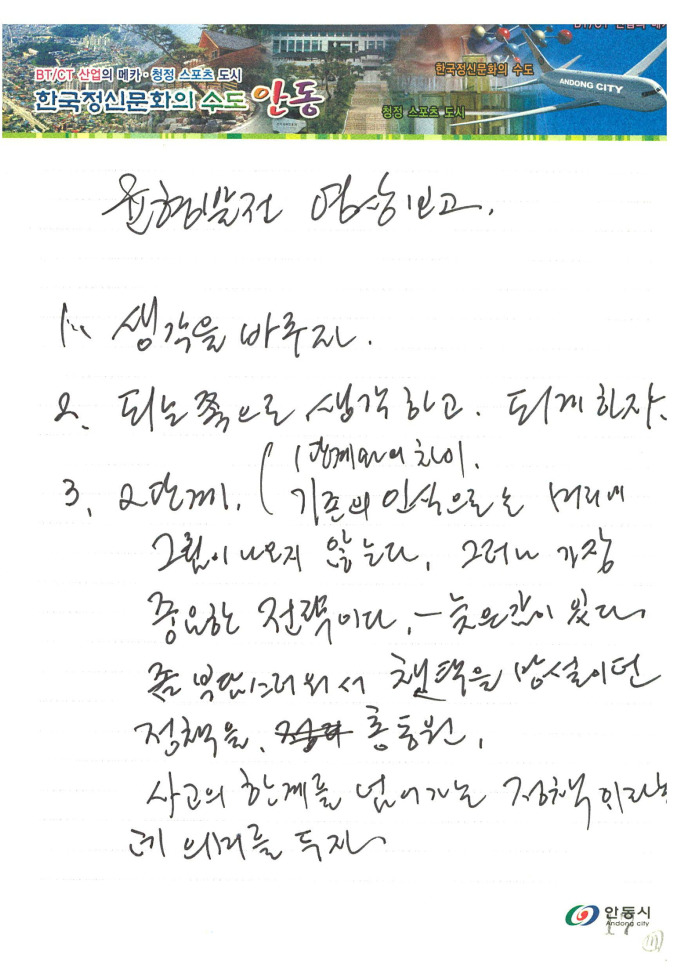 BT/CT 산업의 메카·청정 스포츠 도시
한국정신문화의 수도 안동
한국정신문화의 수도
청정 스포츠 도시
BT/CT 산업의 메카
ANDONG CITY
균형발전 영상보고.
1. 생각을 바꾸자.
2. 되는 쪽으로 생각하고. 되게 하자.
3, 2단계. ( 1단계와의 차이.
기존의 인식으로는 머리에
그림이 나오지 않는다, 그러나 가장
중요한 전략이다, - 늦은감이 있다
좀 부담스러워서 채택을 망설이던
정책을, 총동원,
사고의 한계를 넘어가는 정책이라는
데 의미를 두자
안동시
Andong city
17